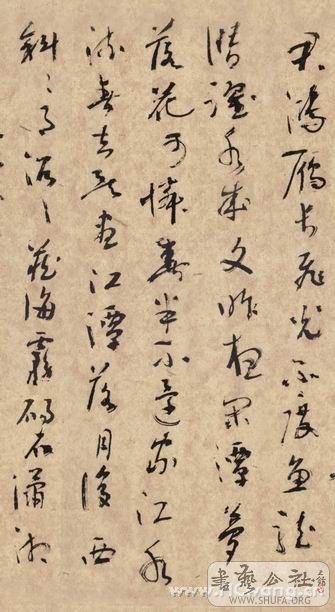 君鴻雁長飛光不度魚龍
潛躍水成文昨夜閑潭夢
落花可憐春半不還家江水
流春去欲盡江潭落月復西
斜〻月沉〻藏海霧碣石瀟湘
書藝公社
WWW.SHUFA.ORG